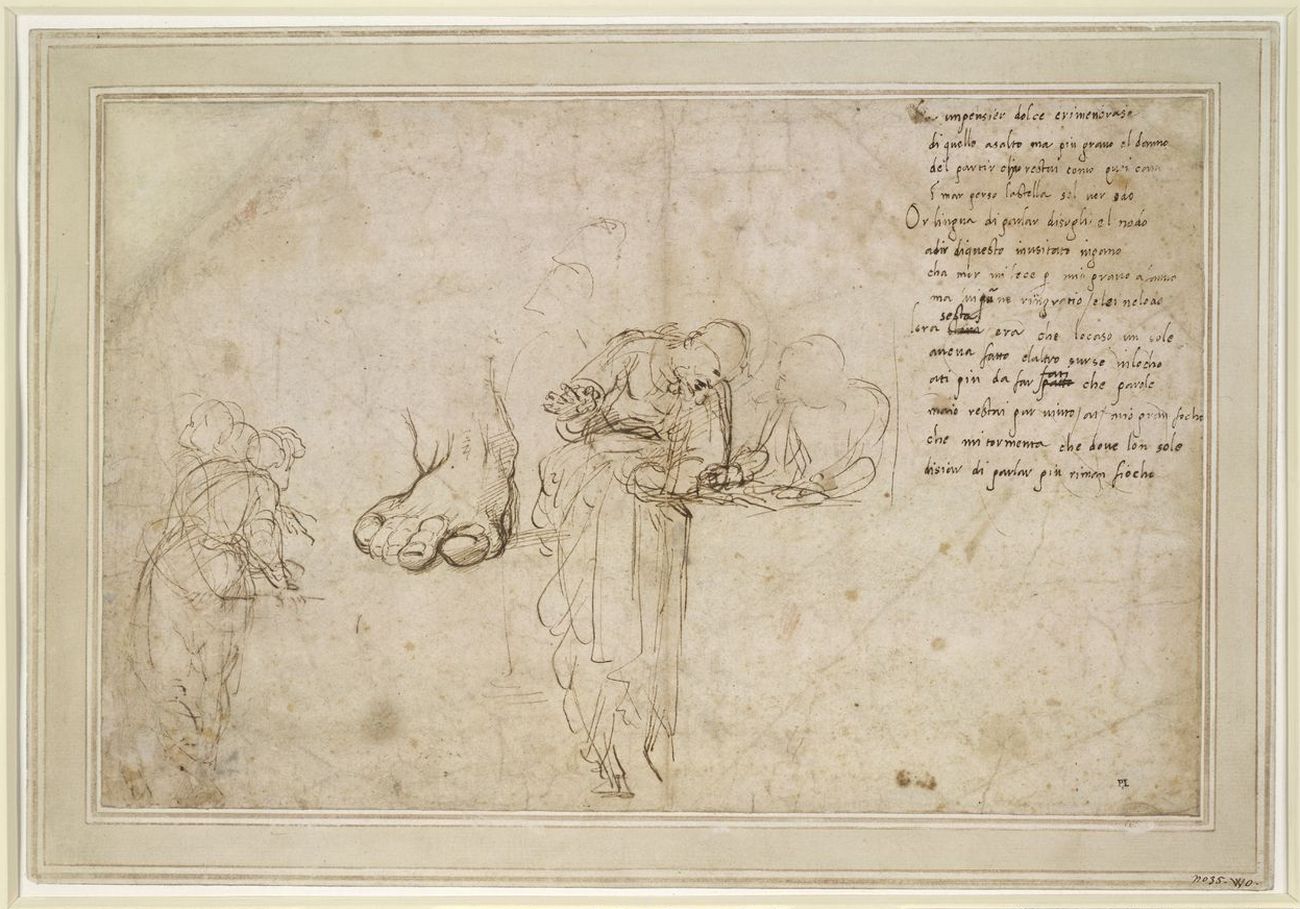 un pensier dolce e rimembrase
di quello asalto ma piu gravo el danno
del partir chio restai como quei cano
i mar perso la stella sel ver odo
Or lingua di parlar disogli el nodo
a dir di questo inusitato ingano
cha mor mi fece p mio gravo afanno
ma lui ne ringratio e lei ne lodo
sesta
lora era che locaso un sole
aveva fatto elaltro surse in locho
fati
ati piu da far che parole
ma io restai pur vinto al mio gran focho
che mi tormenta che dove lon sole
disiar di parlar piu riman fiocho
P.L
no35. WO.